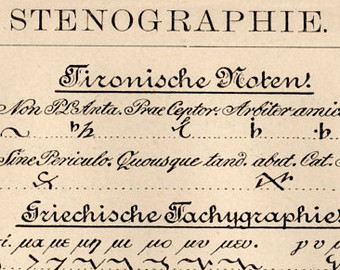 STENOGRAPHIE.
Tironische Noten.
Non Pl. Anta. Prae Ceptor. Arbiter amic
Sine Periculo. Quousque tand. abut. Cat.
Griechische Tachygraphie
μα με μη μι μο μυ μευ.